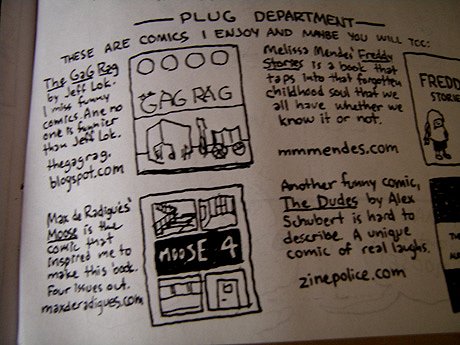 PLUG DEPARTMENT
THESE ARE COMICS I ENJOY AND MAYBE YOU WILL TOO:
The GaG Rag
by Jeff Lok.
I miss funny
comics. And no
one is funnier
than Jeff Lok.
thegagrag.
blogspot.com
GAG RAG
Melissa Mendes' Freddy
Stories is a book that
taps into that forgotten
childhood soul that we
all have whether we
know it or not.
mmmendes.com
FREDD
STORIE
Max de Radiguès'
Moose is the
comic that
inspired me to
make this book.
Four issues out.
maxderadigues.com
MOOSE 4
Another funny comic,
The Dudes by Alex
Schubert is hard to
describe. A unique
comic of real laughs.
zinepolice.com